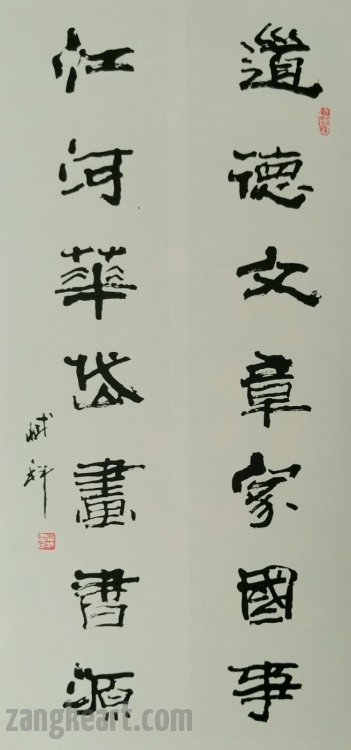 道德文章家國事
江河華岱畫書源
zangkeart.com